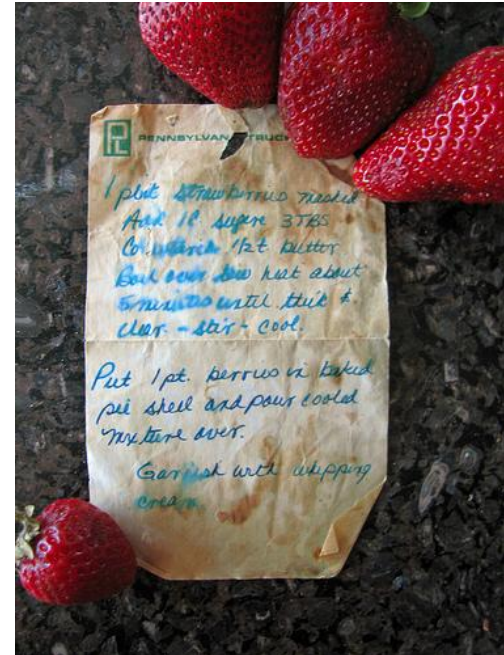 PL
PENNSYLVAN TRUCK
1 pint strawberries mashed
Add 1C. sugar 3 TBS
Cornstarch 1/2t. butter
Boil over low heat about
5 minutes until thick &
clear - stir - cool.
Put 1 pt. berries in baked
pie shell and pour cooled
mixture over.
Garnish with whipping
cream